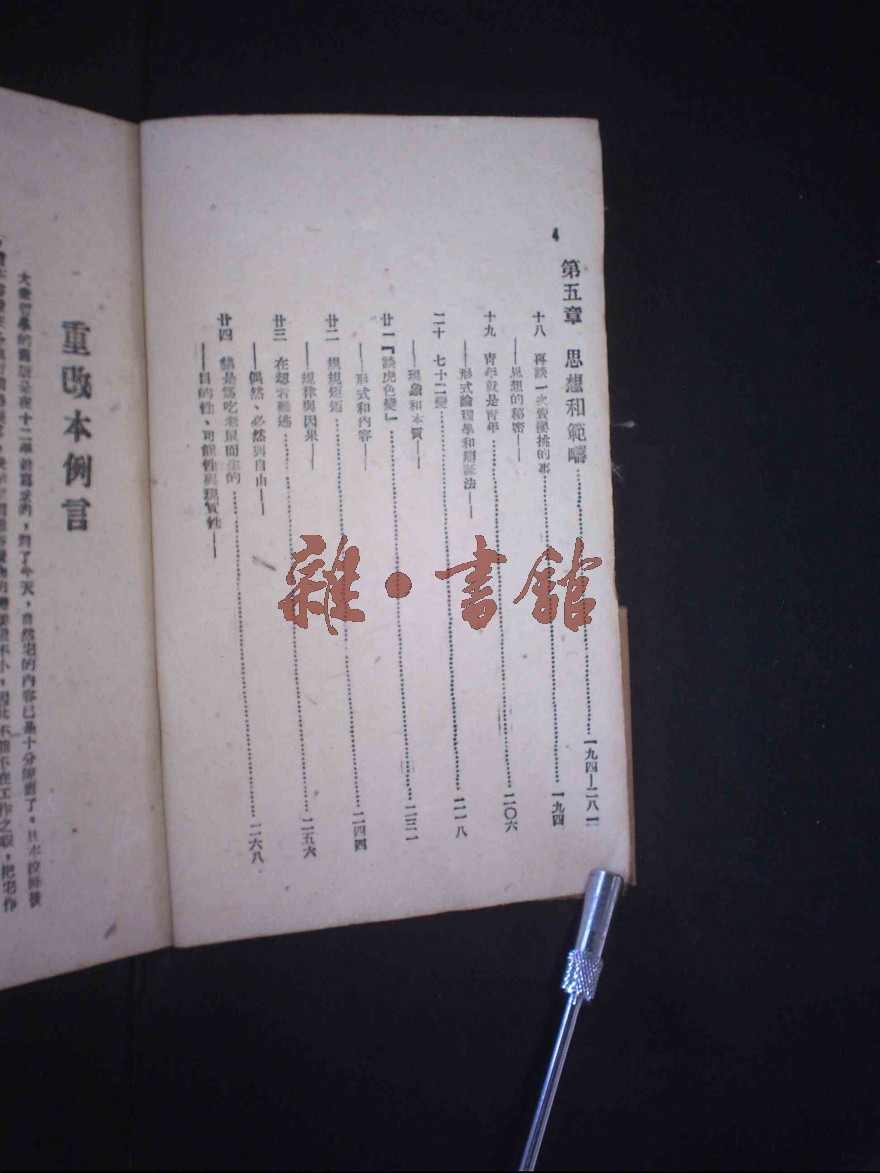 4
第五章 思想和範疇……一九四—二八一
十八 再談一次賣櫻桃的事……一九四
——思想的秘密——
十九 青年就是青年……二〇六
——形式論理學和辯証法——
二十 七十二變……二一八
——現象和本質——
廿一『談虎色變』……二三一
——形式和內容——
廿二 規規矩矩……二四四
——規律與因果——
廿三 在劫者難逃……二五六
——偶然、必然與自由——
廿四 貓是爲吃老鼠而生的……二六八
——目的性、可能性與現實性——
重改本例言
大衆哲學的舊版是在十二年前寫成的，到了今天，自然它的內容已是十分陳舊了。日本投降後
雜·書館